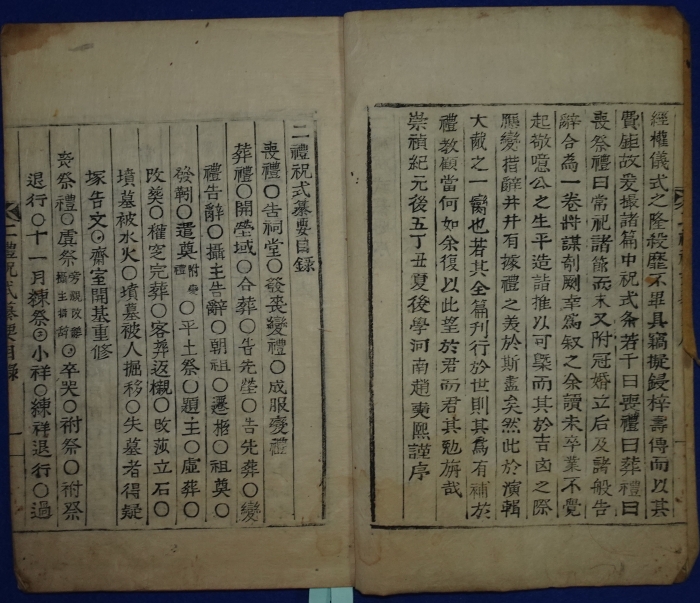 經權儀式之隆殺靡不畢具竊擬鋟梓壽傳而以其
費鉅故爰撮諸篇中祝式各若干曰喪禮曰葬禮曰
喪祭禮曰常祀諸節而末又附冠婚立后及諸般告
辭合為一卷將謀剞劂幸為叙之余讀未卒業不覺
起敬噫公之生平造詣推以可槩而其於吉凶之際
應變措辭井井有據禮之美於斯盡矣然此於演輯
大裁之一臠也若其全篇刊行於世則其為有補於
禮教顧當何如余復以此望於君而君其勉旃哉
崇禎紀元後五丁丑夏後學河南趙奭熙謹序
二禮祝式纂要目錄
喪禮○告祠堂○發喪變禮○成服變禮
葬禮○開塋域○合葬○告先塋○告先葬○變
禮告辭○攝主告辭○朝祖○遷柩○祖奠○
發靷○遣奠禮附○平土祭○題主○虛葬○
改葬○權窆完葬○客葬返櫬○改莎立石○
墳墓被水火○墳墓被人掘移○失墓者得疑
塚告文○齋室開基重修
喪祭禮○虞祭攝主○卒哭○祔祭○祔祭
退行○十一月練祭○小祥○練祥退行○過
二禮祝式纂要目錄